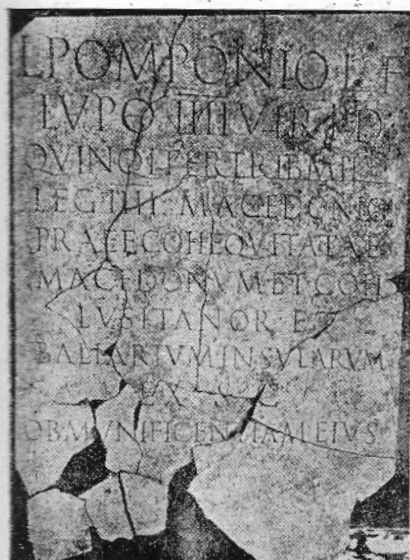 L POMPONIO L F
LVPO IIII VIR I D
QVINQ ITER TRIB MIL
LEG IIII MACEDONIC
PRAEF COH EQVITATAE
MACEDONVM ET COH
LVSITANOR ET
BALIARIVM INSVLARVM
OB MVNIFICENTIAM EIVS